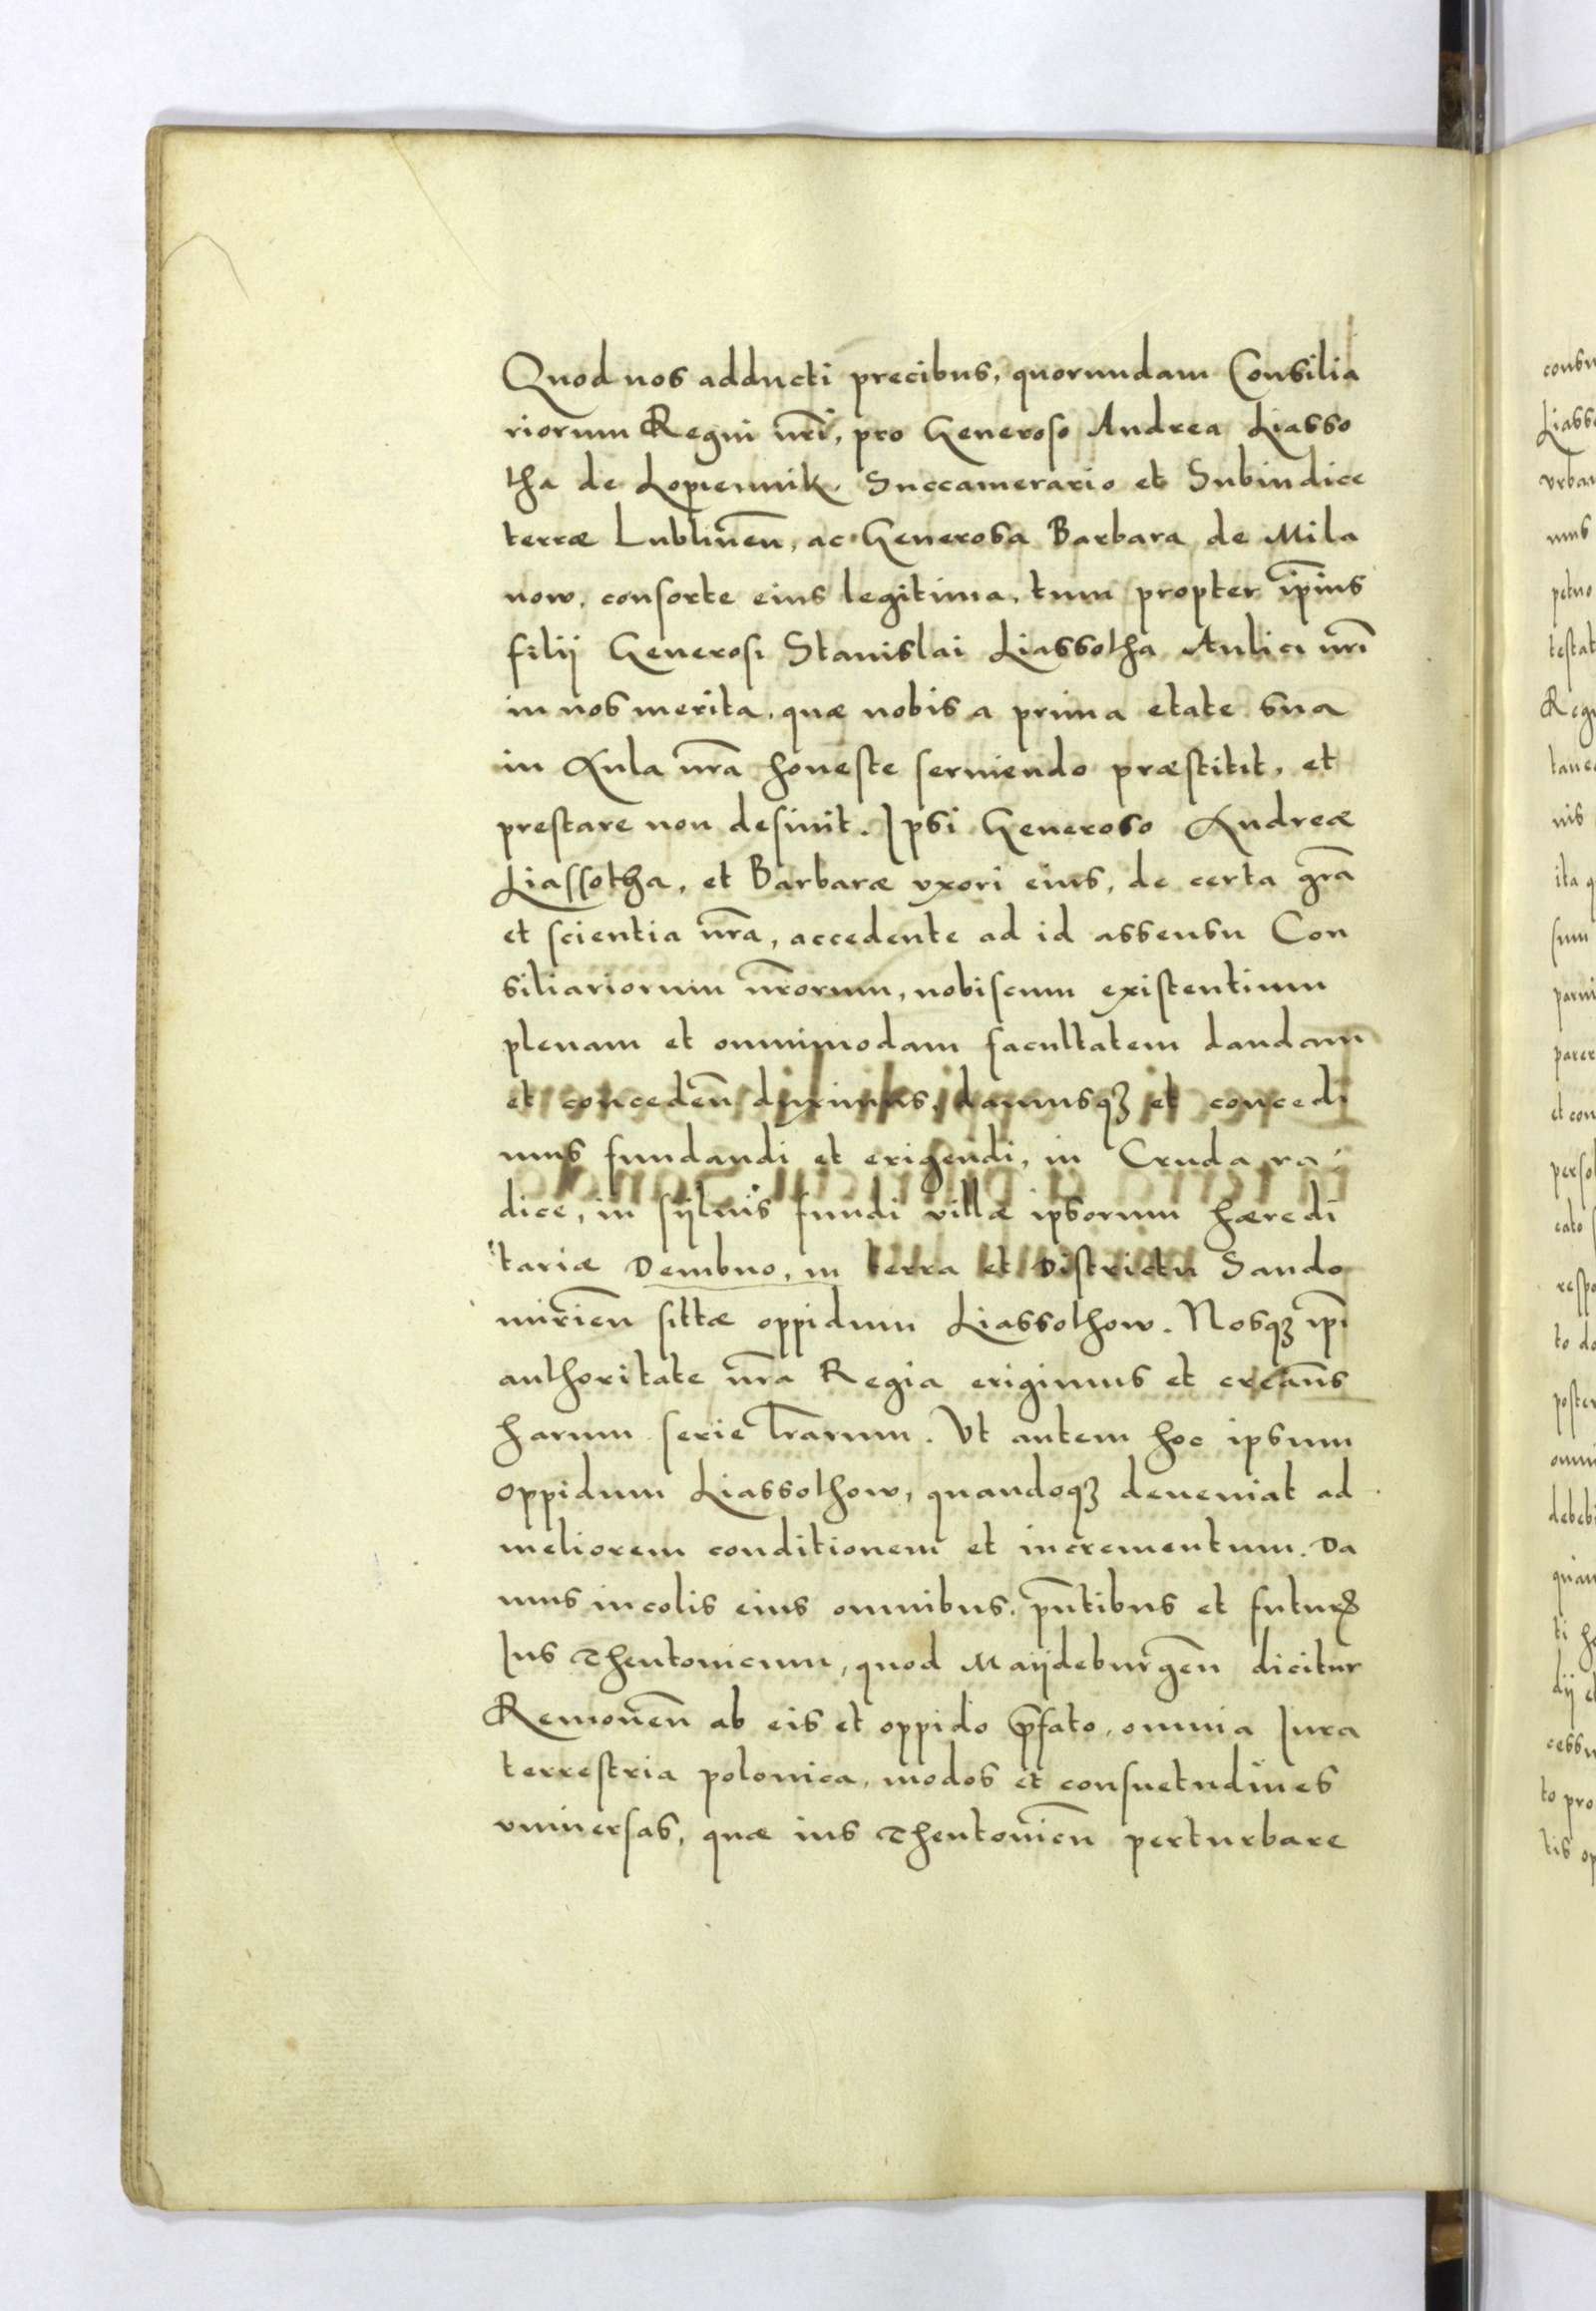 Quod nos adducti precibus, quorundam Consilia
riorum Regni nr̃i, pro Generoso Andrea Liasso
tha de Lopiennik, Succamerario et Subiudice
terræ Lublineñ, ac Generosa Barbara de Mila
now, consorte eius legitima, tum propter ip̃ius
filij Generosi Stanislai Liassotha Aulici nr̃i
in nos merita, quæ nobis a prima etate sua
in Aula nr̃a honeste seruiendo præstitit, et
prestare non desinit. Ipsi Generoso Andreæ
Liassotha, et Barbaræ vxori eius, de certa gr̃a
et scientia nr̃a, accedente ad id assensu Con
siliariorum nr̃orum, nobiscum existentium
plenam et omnimodam facultatem dandam
et concedeñ duximus, damusqꝫ et concedi
mus fundandi et erigendi, in Cruda ra
dice, in sÿluis fundi villæ ipsorum hæredi
tariæ Dembno, in terra et Districtu Sando
mirieñ sittæ oppidum Liassothow. Nosqꝫ ip̃i
authoritate nr̃a Regia erigimus et cream̃s
harum serie l̃rarum. Vt autem hoc ipsum
oppidum Liassothow, quandoqꝫ deueniat ad
meliorem conditionem et incrementum. Da
mus incolis eius omnibus, pñtibus et futurꝭ
Ius Theutonicum, quod Maÿdeburgeñ dicitur
Remoueñ ab eis et oppido p̃fato, omnia Iura
terrestria polonica, modos et consuetudines
vniuersas, quæ ius Theutonicũ perturbare
consu
Liasso
vrban
mus
petuo
testat
Reg
tane
nis
ita q
sum
parui
parer
et con
perso
cato
respo
to do
poster
omni
debebi
quan
ti h
dij e
cessu
to pro
tis op